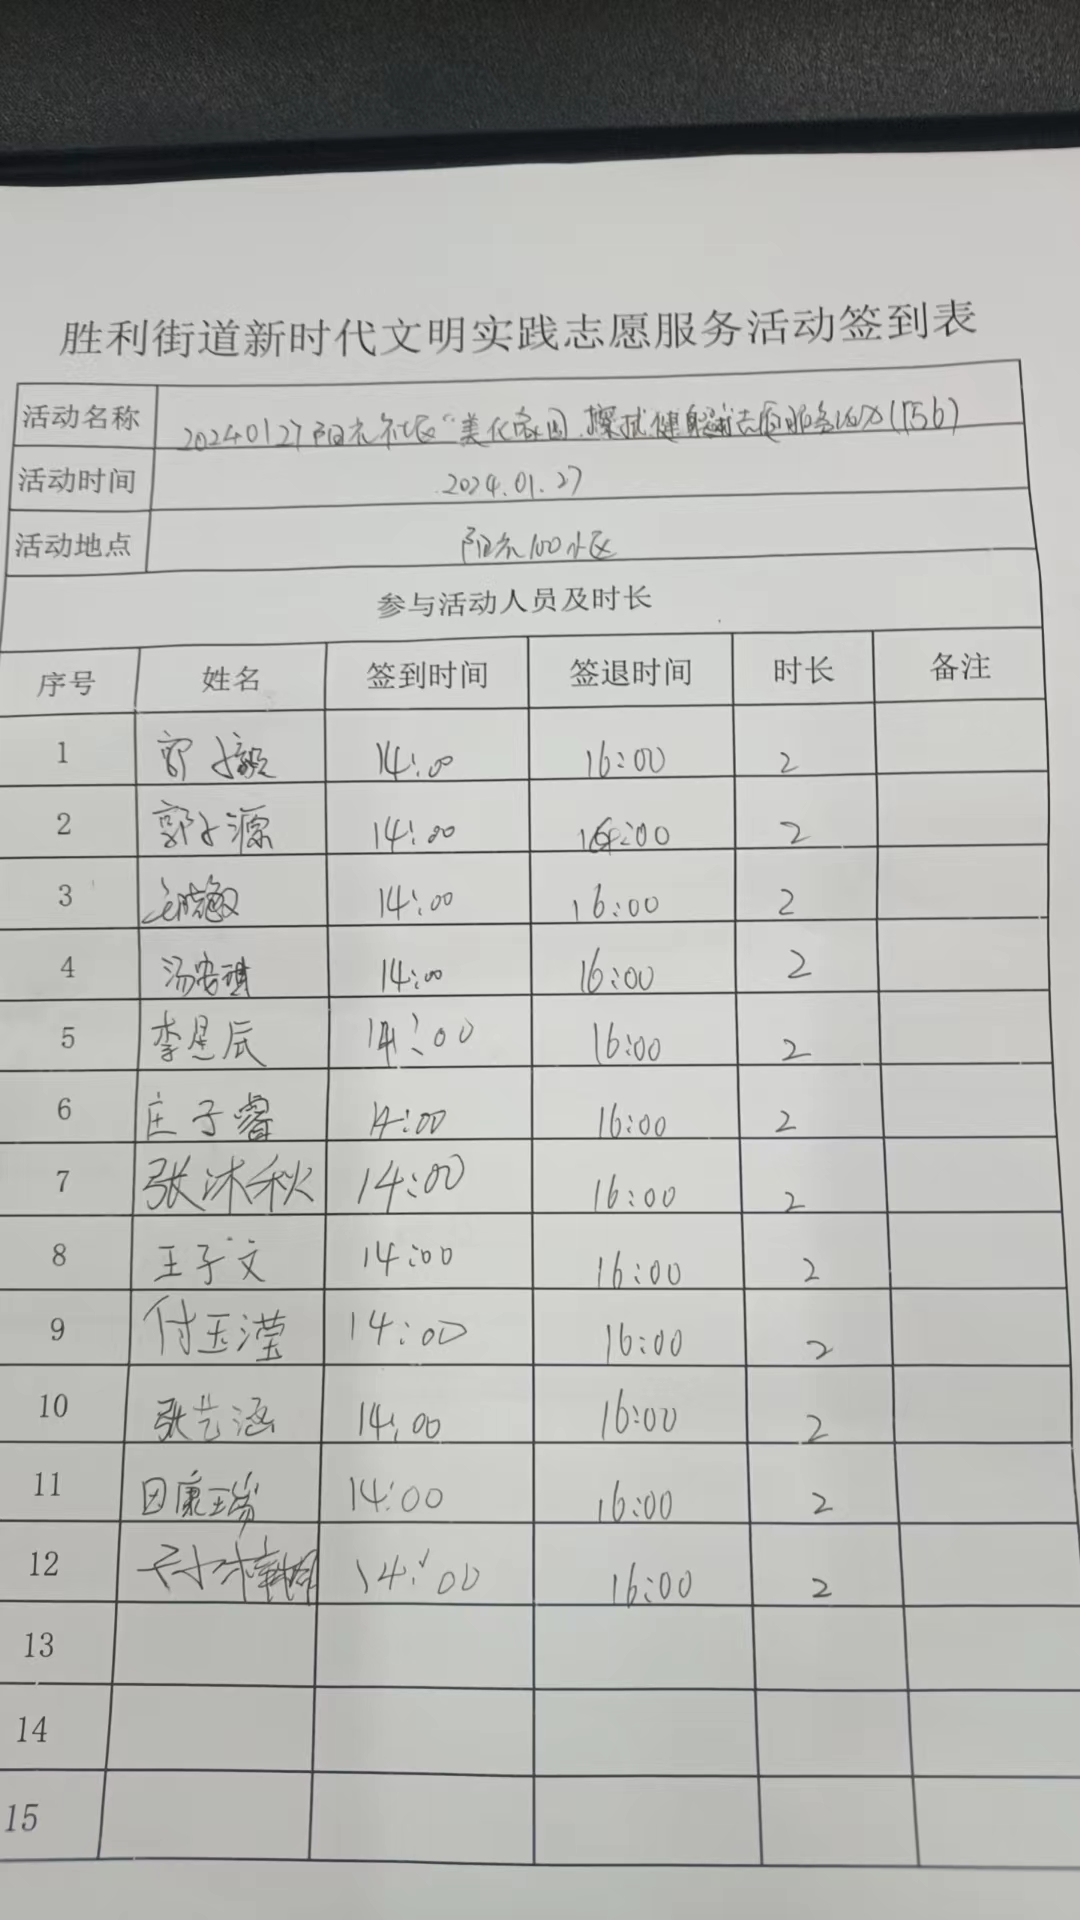 胜利街道新时代文明实践志愿服务活动签到表
活动名称 20240127阳光社区"美化家园,擦拭健身器材"志愿服务活动(156)
活动时间 2024.01.27
活动地点 阳光100小区
参与活动人员及时长
序号 姓名 签到时间 签退时间 时长 备注
1 郭子毅 14:00 16:00 2
2 郭子源 14:00 16:00 2
3 14:00 16:00 2
4 汤安琪 14:00 16:00 2
5 李昱辰 14:00 16:00 2
6 庄子睿 14:00 16:00 2
7 张沐秋 14:00 16:00 2
8 王子文 14:00 16:00 2
9 付玉滢 14:00 16:00 2
10 张艺涵 14:00 16:00 2
11 田康瑞 14:00 16:00 2
12 14:00 16:00 2
13
14
15